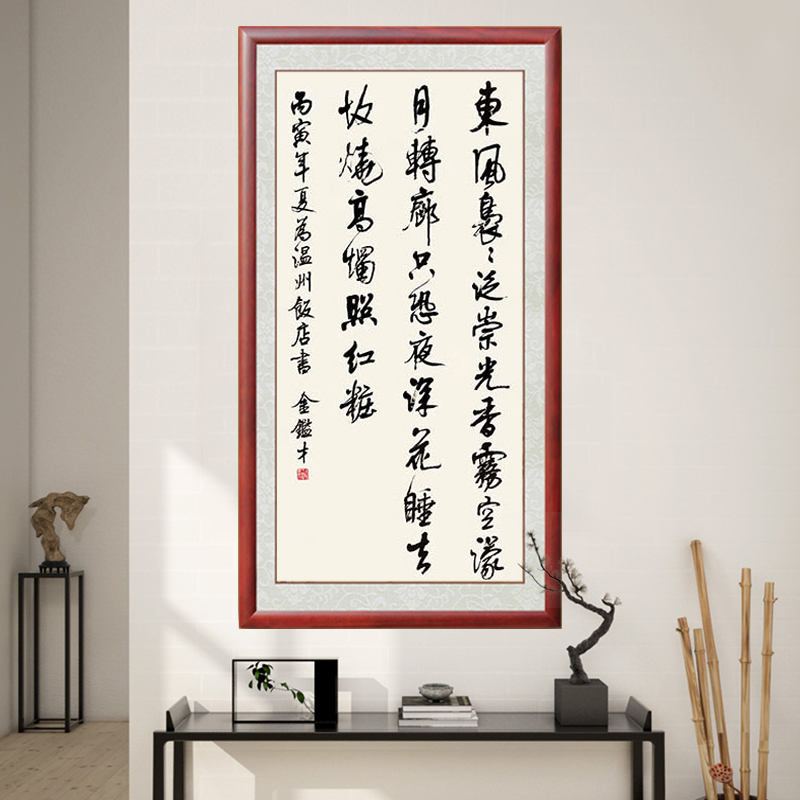 東風裊〻泛崇光香霧空濛
月轉廊只恐夜深花睡去
故燒高燭照红粧
丙寅年夏為温州飯店書 金鑑才